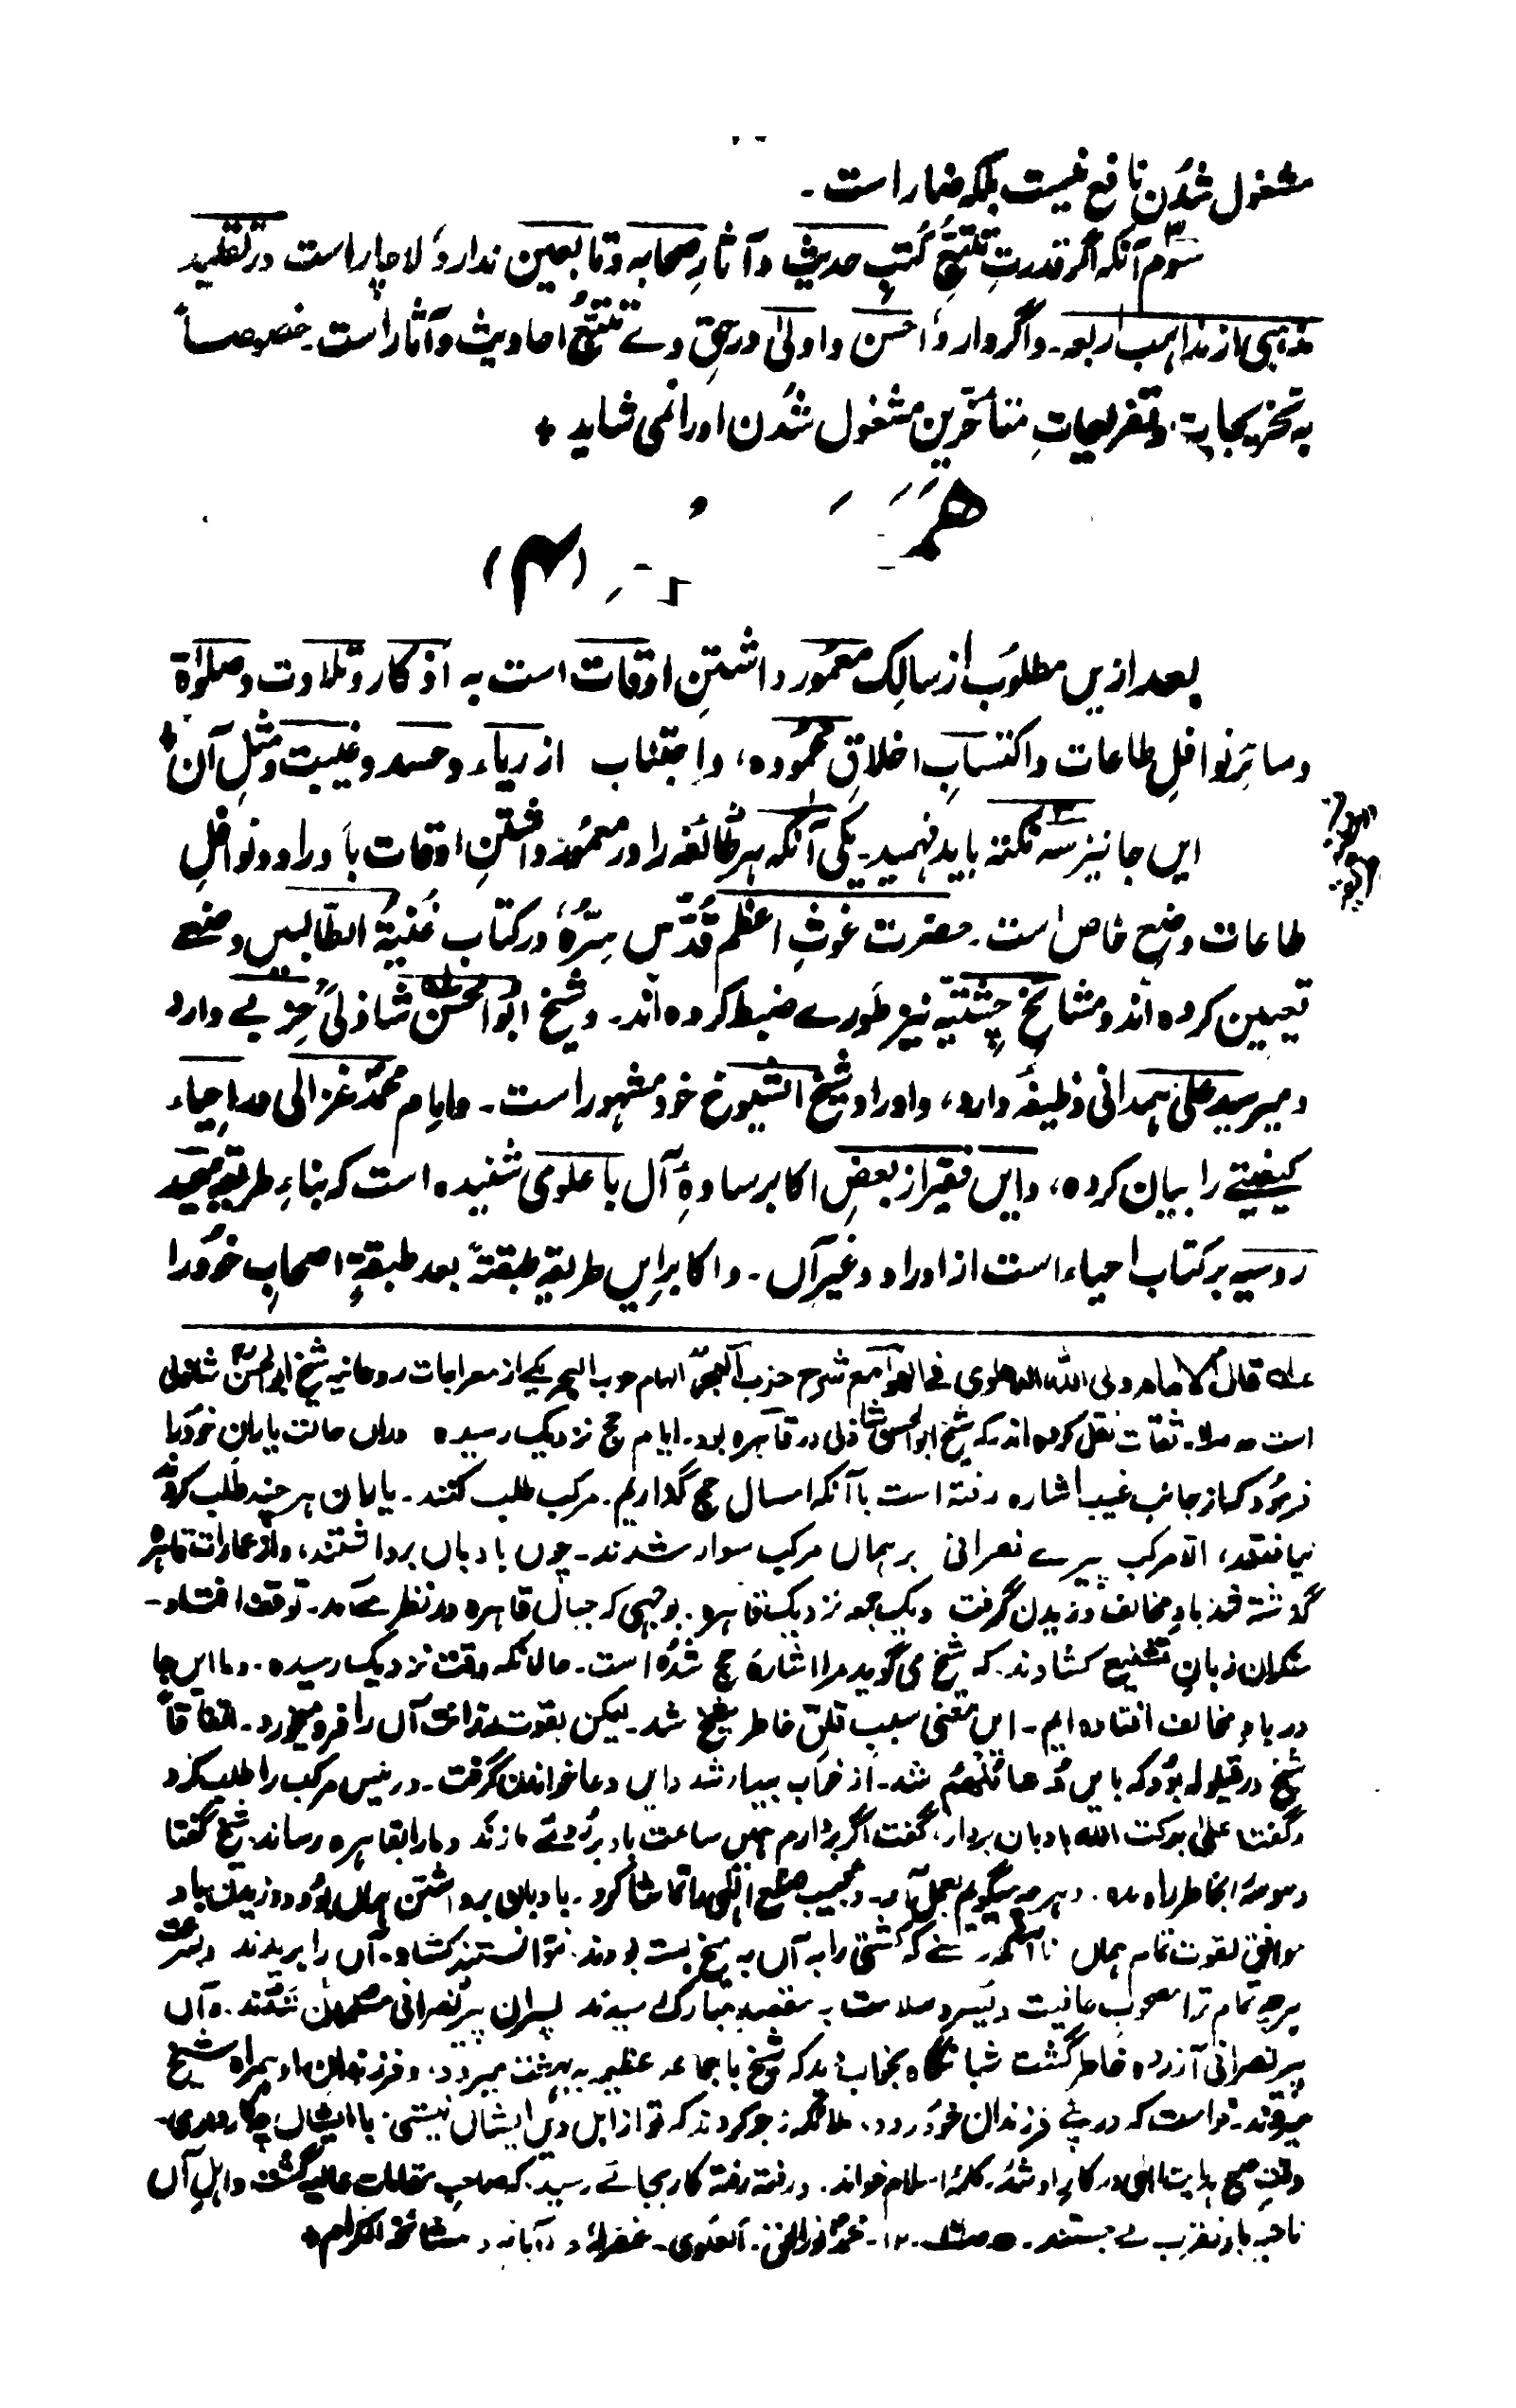 مشغول شدن نافع نیست بلکه ضار است۔
سوم آنکه اگر قدرتِ تتبّعِ کُتبِ حدیث و آثارِ صحابه و تابعین ندارد، لاچار است در تقلید
مذهبی از مذاهب اربعه۔ و اگر دارد، احسن و اولیٰ در حقِ وے تتبّعُ احادیث و آثار است۔ خصوصاً
به تخریجات و تفریعاتِ متأخرین مشغول شُدن او را نمی شاید ٭
(۴)
بعد ازیں مطلوب از سالک معمور داشتنِ اوقات است به اذکار و تلاوت و صلوٰة
و سائرِ نوافلِ طاعات و اکتسابِ اخلاقِ محموده، و اجتناب از ریاء و حسد و غیبت و مثلِ آن٭
ایں جا نیز سه نکته باید فهمید۔ یکی آنکه هر طائفه را در معمور داشتنِ اوقات با وراد و نوافلِ
طاعات وضعِ خاص است۔ حضرت غوثِ اعظم قُدّس سِرّهٗ در کتاب غُنیةُ الطّالبین وضعے
تعیین کرده اند و مشائخِ چشتیّه نیز طورے ضبط کرده اند۔ و شیخ ابوالحسن شاذلی حِزبے دارد
و میر سید علی همدانی وظیفه دارد، و اوراد شیخ الشیوخ خود مشهور است۔ و امام محمد غزالی در احیاء
کیفیتے را بیان کرده، و ایں فقیر از بعضِ اکابر سادهٔ آل با علوی شنیده است که بناءِ طریقهٔ
روسیه بر کتاب احیاء است از اوراد و غیر آں۔ و اکابرِ ایں طریقه طبقةً بعد طبقةٍ اصحابِ خود را
عله قال الامام ولی الله الدهلوی فی الهوامع شرح حزب البحر الهام حزب البحر یکے از معراجات روحانیه شیخ ابوالحسن شاذلی
است۔ ثقات نقل کرده اند که شیخ ابوالحسن شاذلی در قاهره بود۔ ایام حج نزدیک رسیده دراں حالت یارانِ خود را
فرمود که از جانب غیب اشاره رفته است با آنکه امسال حج گذاریم۔ مرکب طلب کنند۔ یاران هر چند طلب کردند
نیافتند، الا مرکب پیرے نصرانی بر هماں مرکب سوار شدند۔ چوں بادباں برداشتند، و از عمارات قاهره
گذشته شد بادِ مخالف وزیدن گرفت و یک جمعه نزدیک قاهره۔ بوجهی که جبال قاهره در نظر مے آمد۔ توقف افتاد۔
منکران زبانِ تشنیع کشادند۔ که شیخ می گوید مرا اشارهٔ حج شده است۔ حالانکه وقت نزدیک رسیده۔ و ما ایں جا
در بادِ مخالف افتاده ایم۔ ایں معنی سبب قلقِ خاطر شیخ شد۔ لیکن بقوت آں را فرو میخورد۔ اتفاقاً
شیخ در قیلوله بود که بایں دعا مُلهَم شد۔ از خواب بیدار شد و ایں دعا خواندن گرفت۔ و رئیس مرکب را طلب کرد
و گفت علیٰ برکت الله بادبان بردار، گفت اگر بردارم همیں ساعت باد بر روئے ما زند و ما را بقاهره رساند۔ شیخ گفتا
وسوسهٔ بخاطر راه مده۔ و هرچه میگویم بعمل آر۔ و عجیب صنع الٰهی را تماشا کرد۔ بادباں برداشتن هماں بود و وزیدن باد
موافق بقوت تمام هماں تا آنکه که کشتی را به آں به میخ بسته بودند۔ نتوانستند کشاد۔ آں را بریدند و بسرعت
هرچه تمام تر مصحوب عافیت و بسر و سلامت به مقصد مبارک رسیدند پسران پیر نصرانی مسلمان شدند۔ و آں
پیر نصرانی آزرده خاطر گشت شبانگاه بخواب دید که شیخ با جماعه عظیم به بهشت میرود۔ و فرزندان او همراه شیخ
میروند۔ خواست که در پئے فرزندان خود رود۔ ملائکه زجر کردند که تو از اهل دین ایشاں نیستی۔ با ایشاں چکار داری۔
وقتِ صبح هدایت الٰهی در کار او شد۔ کلمهٔ اسلام خواند۔ و رفته رفته کار بجائے رسید۔ که صاحبِ مقامات عالیه گشت و اهلِ آں
ناحیه باو تقرب مے جستند۔ ۱۲۔ محمد نورالحق۔ العلوی۔ غفرلهٗ و لآبائه و مشائخه الکرام٭